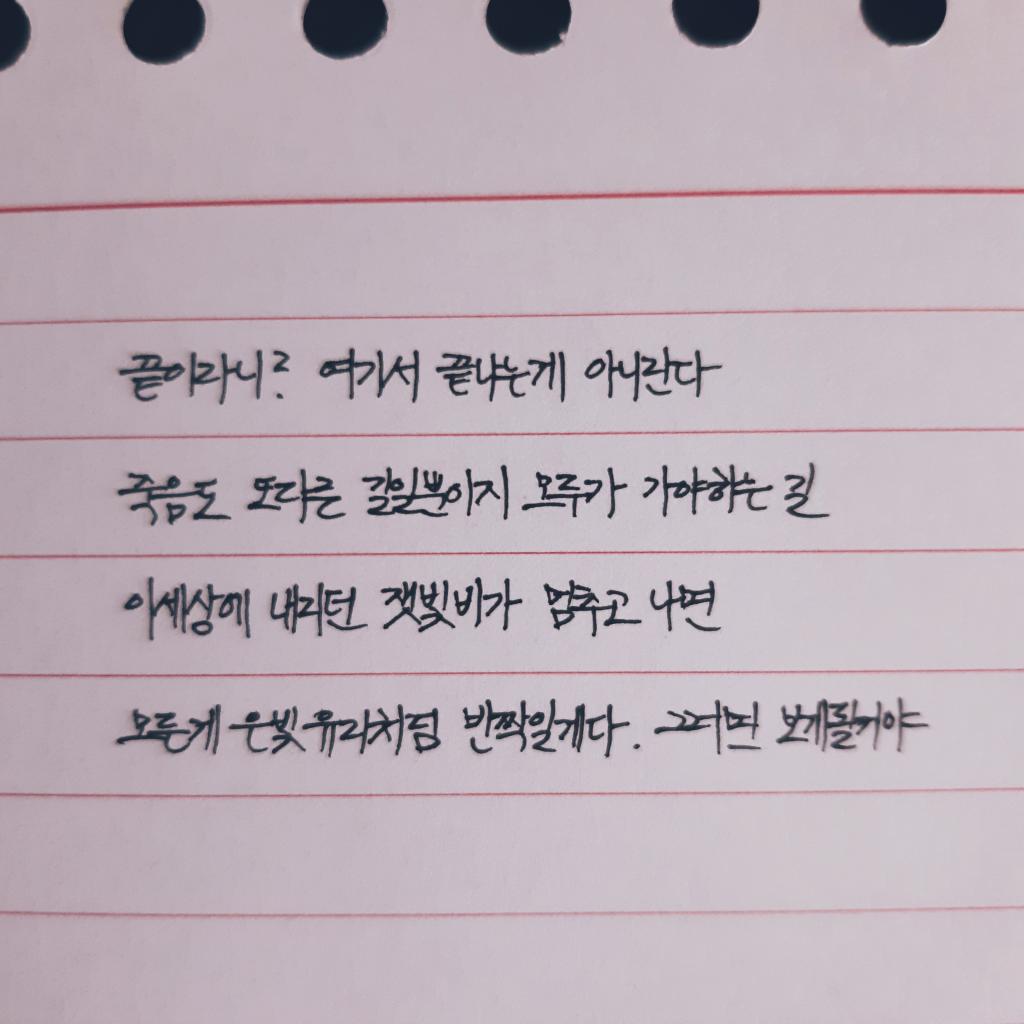 끝이라니? 여기서 끝나는게 아니란다
죽음도 또다른 길일뿐이지 모두가 가야하는 길
이세상에 내리던 잿빛비가 멈추고 나면
모든게 은빛유리처럼 반짝일게다. 그러면 보게될거야